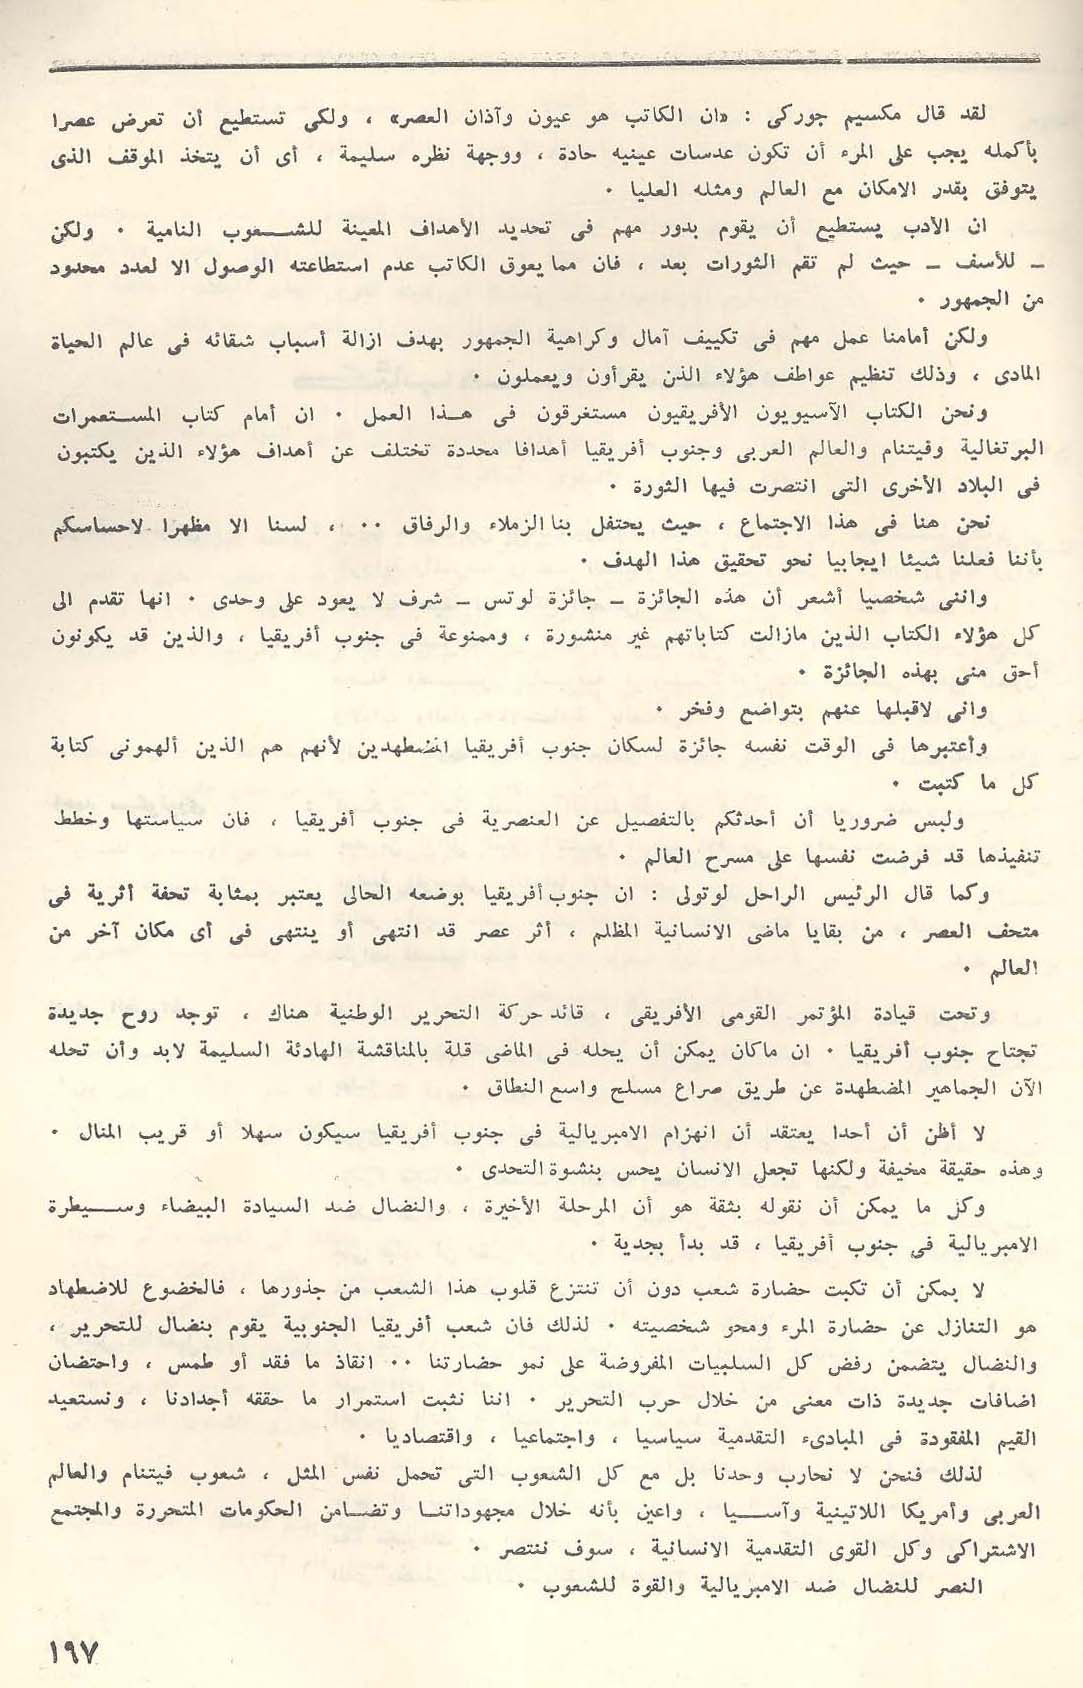 لقد قال مكسيم جوركى : «ان الكاتب هو عيون وآذان العصر» ، ولكى تستطيع أن تعرض عصرا
بأكمله يجب على المرء أن تكون عدسات عينيه حادة ، ووجهة نظره سليمة ، أى أن يتخذ الموقف الذى
يتوفق بقدر الامكان مع العالم ومثله العليا ٠
ان الأدب يستطيع أن يقوم بدور مهم فى تحديد الأهداف المعينة للشعوب النامية ٠ ولكن
ـ للأسف ـ حيث لم تقم الثورات بعد ، فان مما يعوق الكاتب عدم استطاعته الوصول الا لعدد محدود
من الجمهور ٠
ولكن أمامنا عمل مهم فى تكييف آمال وكراهية الجمهور بهدف ازالة أسباب شقائه فى عالم الحياة
المادى ، وذلك تنظيم عواطف هؤلاء الذن يقرأون ويعملون ٠
ونحن الكتاب الآسيويون الأفريقيون مستغرقون فى هذا العمل ٠ ان أمام كتاب المستعمرات
البرتغالية وفيتنام والعالم العربى وجنوب أفريقيا أهدافا محددة تختلف عن أهداف هؤلاء الذين يكتبون
فى البلاد الأخرى التى انتصرت فيها الثورة ٠
نحن هنا فى هذا الاجتماع ، حيث يحتفل بنا الزملاء والرفاق ٠٠ ، لسنا الا مظهرا لاحساسكم
بأننا فعلنا شيئا ايجابيا نحو تحقيق هذا الهدف ٠
واننى شخصيا أشعر أن هذه الجائزة ـ جائزة لوتس ـ شرف لا يعود على وحدى ٠ انها تقدم الى
كل هؤلاء الكتاب الذين مازالت كتاباتهم غير منشورة ، وممنوعة فى جنوب أفريقيا ، والذين قد يكونون
أحق منى بهذه الجائزة ٠
وانى لاقبلها عنهم بتواضع وفخر ٠
وأعتبرها فى الوقت نفسه جائزة لسكان جنوب أفريقيا المضطهدين لأنهم هم الذين ألهمونى كتابة
كل ما كتبت ٠
وليس ضروريا أن أحدثكم بالتفصيل عن العنصرية فى جنوب أفريقيا ، فان سياستها وخطط
تنفيذها قد فرضت نفسها على مسرح العالم ٠
وكما قال الرئيس الراحل لوتولى : ان جنوب أفريقيا بوضعه الحالى يعتبر بمثابة تحفة أثرية فى
متحف العصر ، من بقايا ماضى الانسانية المظلم ، أثر عصر قد انتهى أو ينتهى فى أى مكان آخر من
العالم ٠
وتحت قيادة المؤتمر القومى الأفريقى ، قائد حركة التحرير الوطنية هناك ، توجد روح جديدة
تجتاح جنوب أفريقيا ٠ ان ماكان يمكن أن يحله فى الماضى قلة بالمناقشة الهادئة السليمة لابد وأن تحله
الآن الجماهير المضطهدة عن طريق صراع مسلح واسع النطاق ٠
لا أظن أن أحدا يعتقد أن انهزام الامبريالية فى جنوب أفريقيا سيكون سهلا أو قريب المنال ٠
وهذه حقيقة مخيفة ولكنها تجعل الانسان يحس بنشوة التحدى ٠
وكل ما يمكن أن نقوله بثقة هو أن المرحلة الأخيرة ، والنضال ضد السيادة البيضاء وسيطرة
الامبريالية فى جنوب أفريقيا ، قد بدأ بجدية ٠
لا يمكن أن تكبت حضارة شعب دون أن تنتزع قلوب هذا الشعب من جذورها ، فالخضوع للاضطهاد
هو التنازل عن حضارة المرء ومحو شخصيته ٠ لذلك فان شعب أفريقيا الجنوبية يقوم بنضال للتحرير ،
والنضال يتضمن رفض كل السلبيات المفروضة على نمو حضارتنا ٠٠ انقاذ ما فقد أو طمس ، واحتضان
اضافات جديدة ذات معنى من خلال حرب التحرير ٠ اننا نثبت استمرار ما حققه أجدادنا ، ونستعيد
القيم المفقودة فى المبادىء التقدمية سياسيا ، واجتماعيا ، واقتصاديا ٠
لذلك فنحن لا نحارب وحدنا بل مع كل الشعوب التى تحمل نفس المثل ، شعوب فيتنام والعالم
العربى وأمريكا اللاتينية وآسيا ، واعين بأنه خلال مجهوداتنا وتضامن الحكومات المتحررة والمجتمع
الاشتراكى وكل القوى التقدمية الانسانية ، سوف ننتصر ٠
النصر للنضال ضد الامبريالية والقوة للشعوب ٠
١٩٧